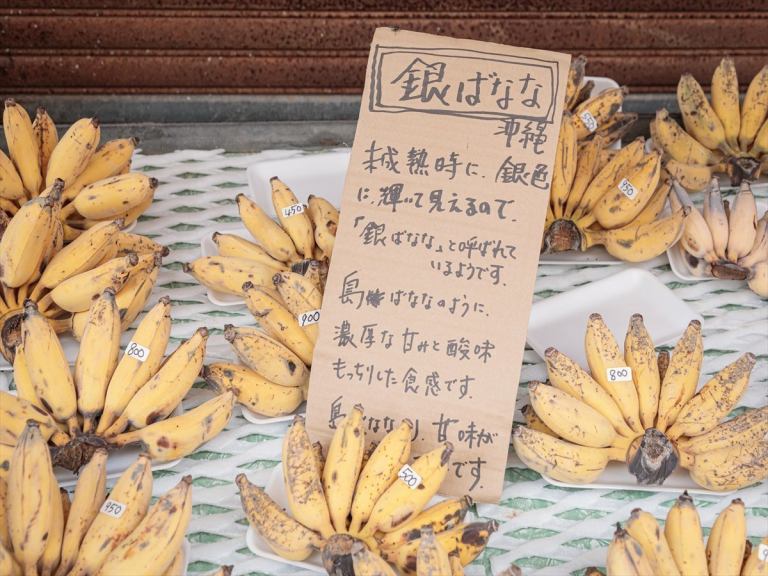 銀ばなな
沖縄
熟時に、銀色
に輝いて見えるので、
「銀ばなな」と呼ばれて
いるようです。
島ばななのように、
濃厚な甘みと酸味
もっちりした食感です。
島ばななより、甘味が
です。
550
450
950
900
800
800
500
950